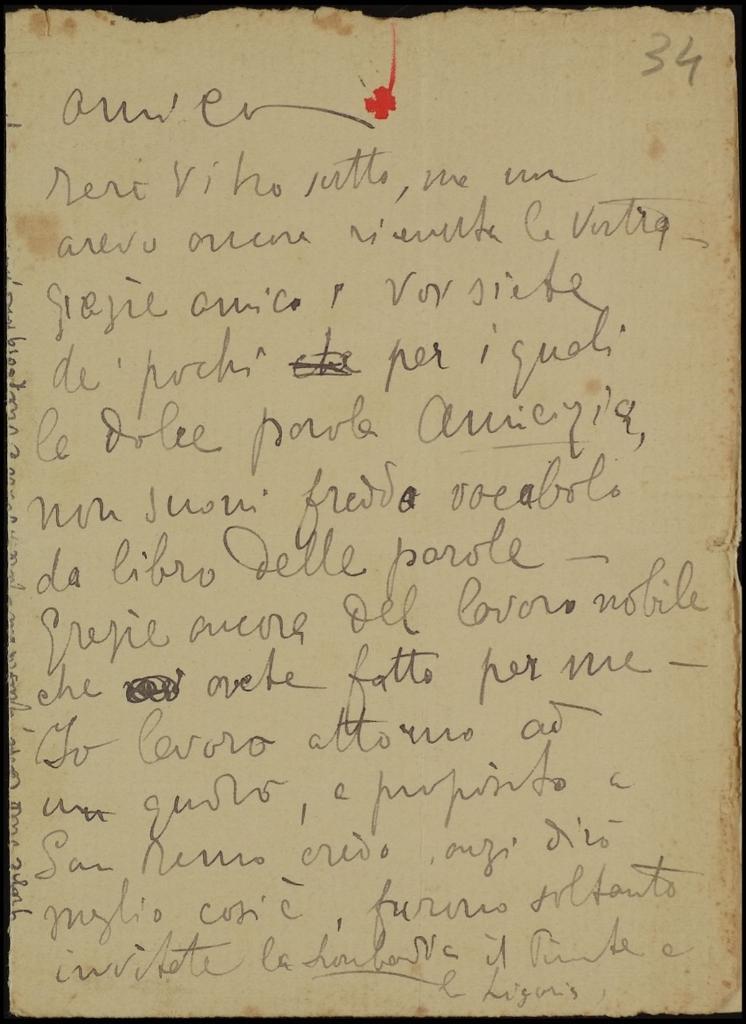 34
amico
ieri vi ho scritto, ma non
avevo ancora ricevuta la vostra —
grazie amico! voi siete
de' pochi che per i quali
la dolce parola Amicizia,
non suoni freddo vocabolo
da libro delle parole —
Grazie ancora del lavoro nobile
che avete fatto per me —
Io lavoro attorno ad
un quadro, a proposito a
San Remo credo, anzi dirò
meglio così è, furono soltanto
invitate la Lombardia il Piemonte e
la Liguria,